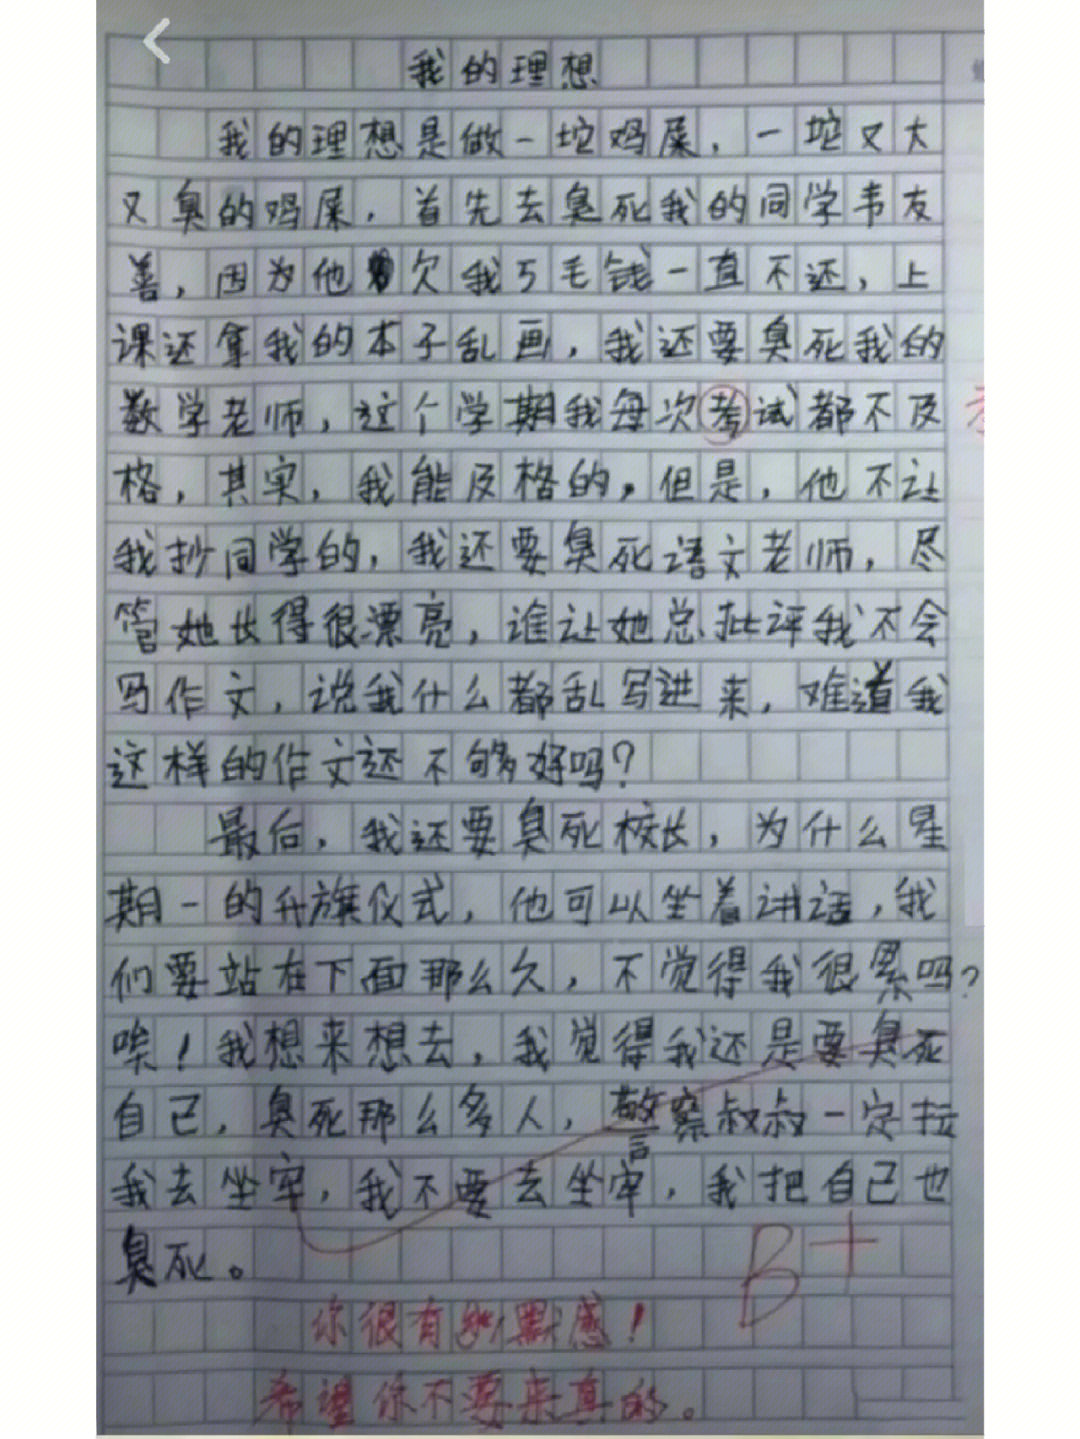 我的理想
我的理想是做一坨鸡屎，一坨又大
又臭的鸡屎，首先去臭死我的同学韦友
善，因为他欠我5毛钱一直不还，上
课还拿我的本子乱画，我还要臭死我的
数学老师，这个学期我每次考试都不及
格，其实，我能及格的，但是，他不让
我抄同学的，我还要臭死语文老师，尽
管她长得很漂亮，谁让她总批评我不会
写作文，说我什么都乱写进来，难道我
这样的作文还不够好吗？
最后，我还要臭死校长，为什么星
期一的升旗仪式，他可以坐着讲话，我
们要站在下面那么久，不觉得我很累吗？
唉！我想来想去，我觉得我还是要臭死
自己，臭死那么多人，警察叔叔一定拉
我去坐牢，我不要去坐牢，我把自己也
臭死。
B+
你很有幽默感！
希望你不要来真的。